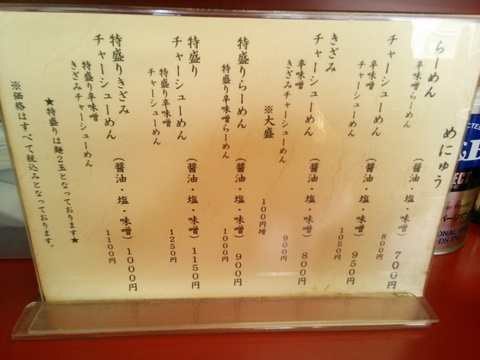 らーめん めにゅう
らーめん（醤油・塩・味噌）700円
辛味噌らーめん 800円
チャーシューめん（醤油・塩・味噌）950円
辛味噌チャーシューめん 1050円
きざみチャーシューめん（醤油・塩・味噌）800円
辛味噌きざみチャーシューめん 900円
※大盛 100円増
特盛りらーめん（醤油・塩・味噌）900円
特盛り辛味噌らーめん 1000円
特盛りチャーシューめん（醤油・塩・味噌）1150円
特盛り辛味噌チャーシューめん 1250円
特盛りきざみチャーシューめん（醤油・塩・味噌）1000円
特盛り辛味噌きざみチャーシューめん 1100円
★特盛りは麺2玉となっております★
※価格はすべて税込みとなっております。